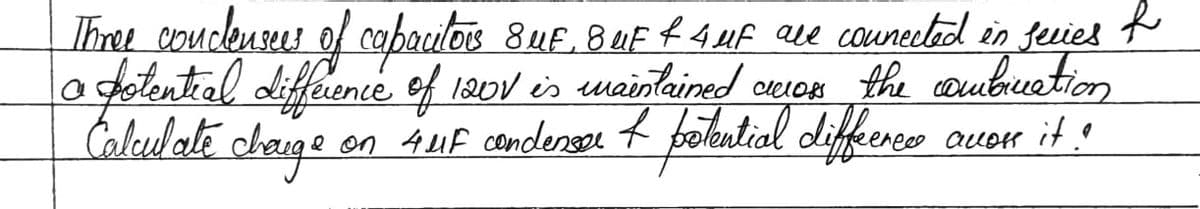 Three condensers of capacitors 8μF, 8μF & 4μF are connected in series &
a potential difference of 120V is maintained across the combination
Calculate charge on 4μF condenser & potential difference across it !